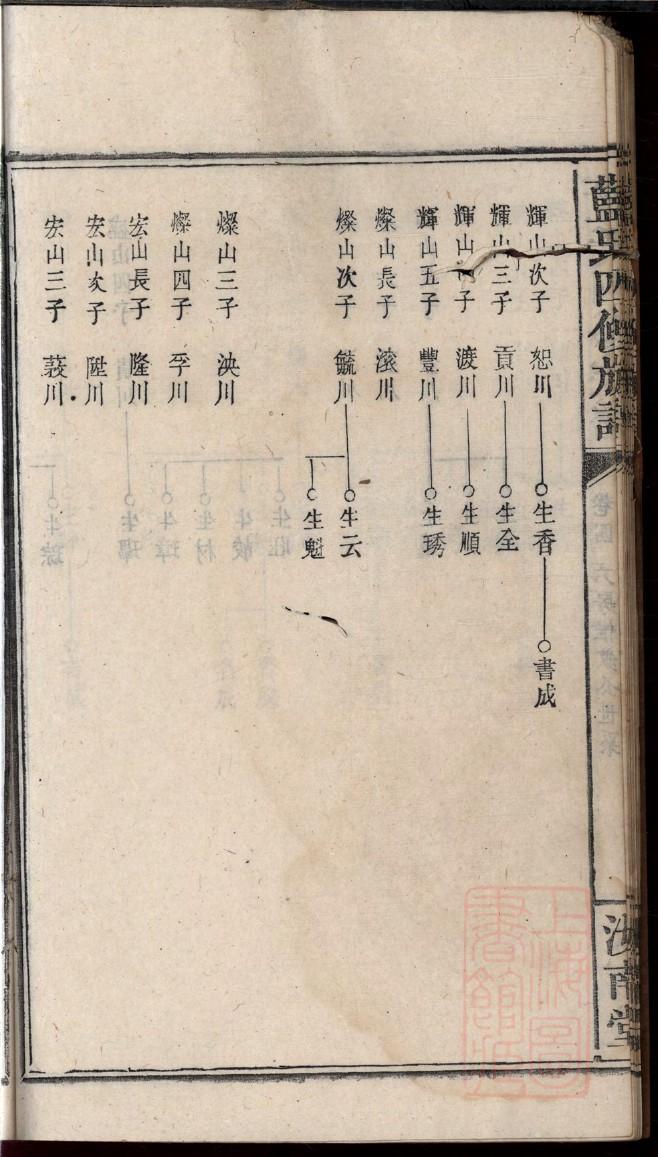 藍氏四修族譜
汝南堂
輝山次子 恕川 生香 書成
輝山三子 貢川 生全
輝山 子 渡川 生順
輝山五子 豐川 生琇
燦山長子 滚川
燦山次子 毓川 生云
生魁
燦山三子 泱川
燦山四子 孚川
宏山長子 隆川
宏山次子 陞川
宏山三子 川
上海图书馆藏